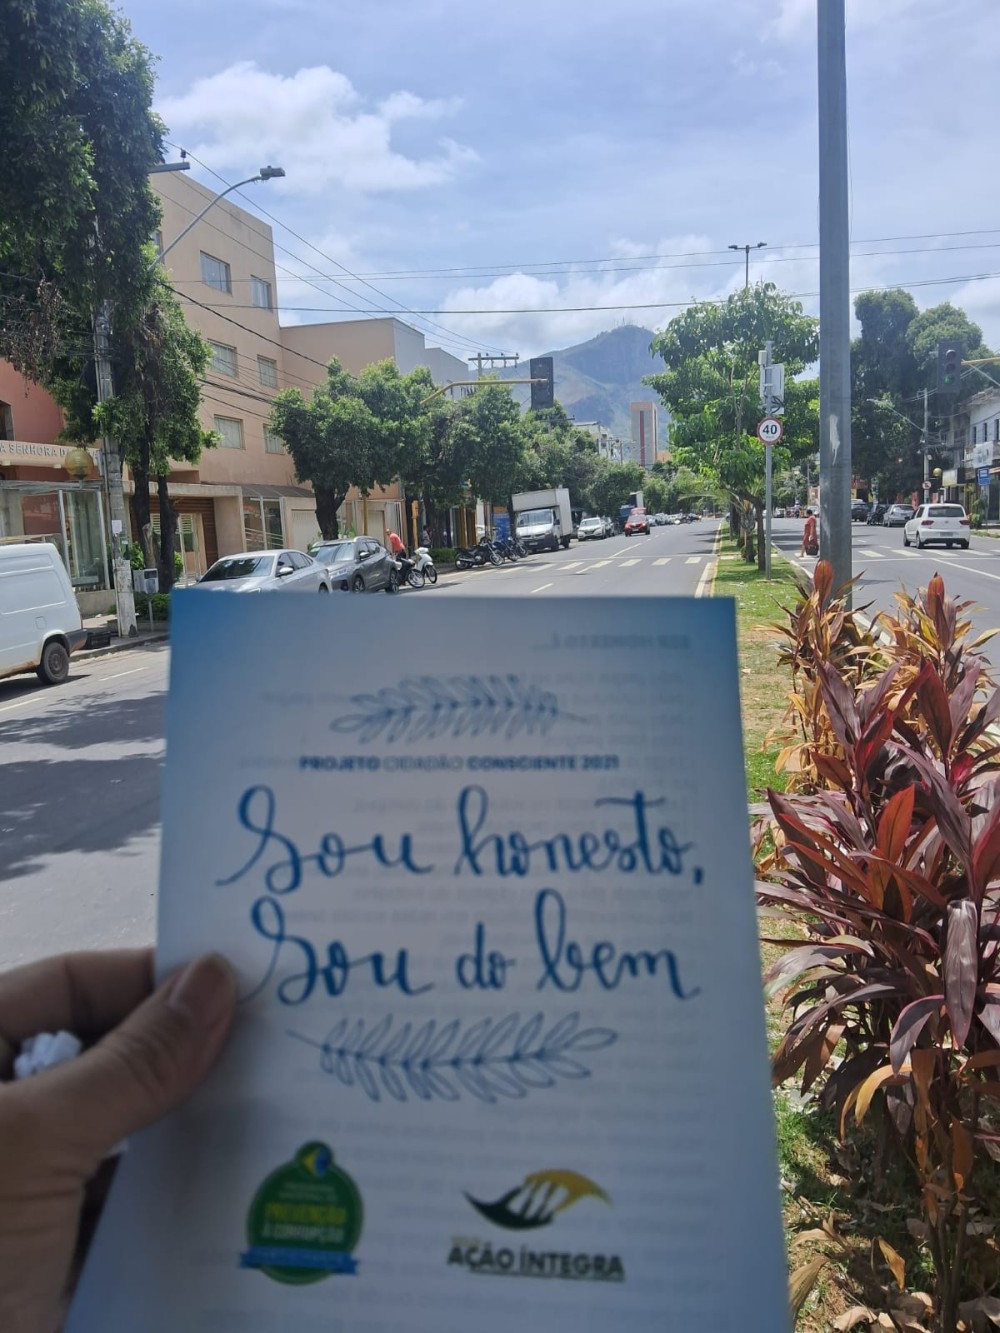 A SENHORA D
40
PROJETO CIDADÃO CONSCIENTE 2021
Sou honesto,
Sou do bem
PREVENÇÃO
À CORRUPÇÃO
AÇÃO ÍNTEGRA